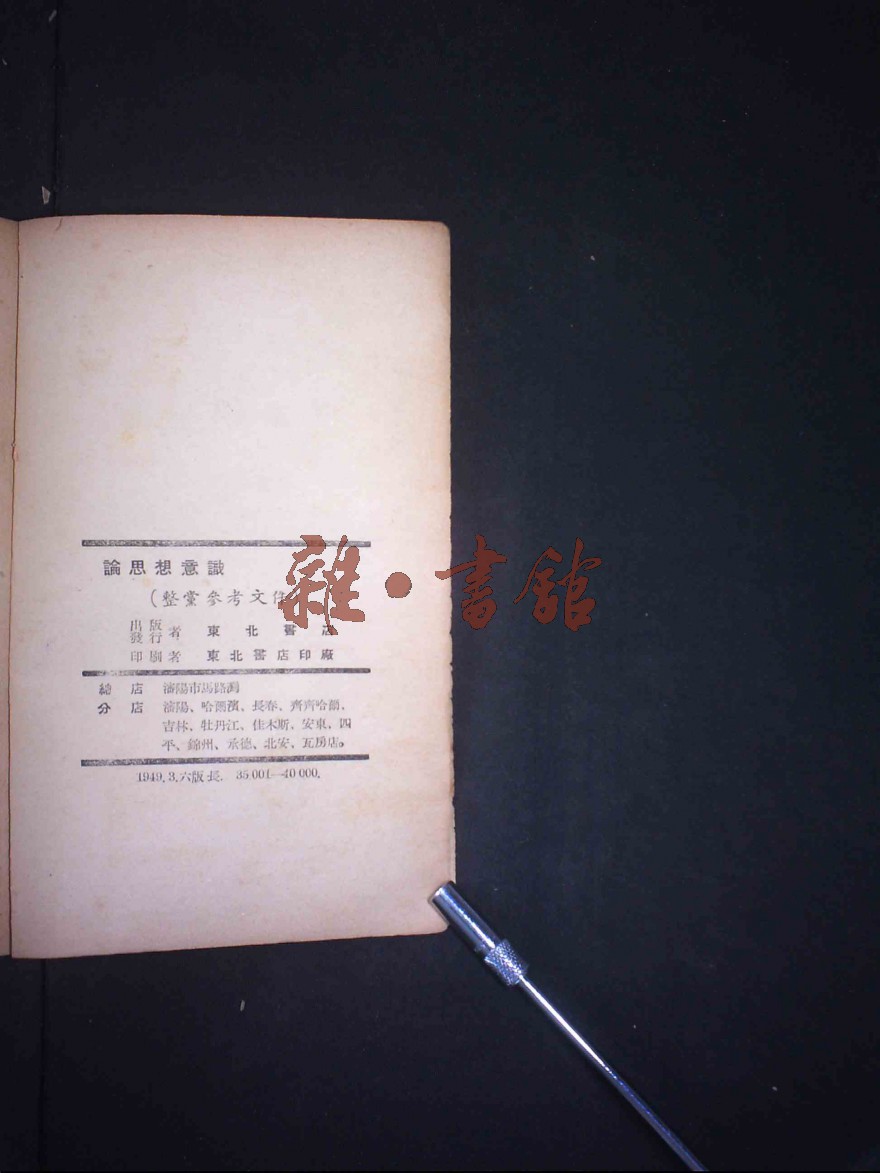 論思想意識
（整黨參考文件
出版
發行者 東北書店
印刷者 東北書店印廠
總店 瀋陽市馬路灣
分店 瀋陽、哈爾濱、長春、齊齊哈爾、
吉林、牡丹江、佳木斯、安東、四
平、錦州、承德、北安、瓦房店。
1949.3.六版 長. 35 001—40 000.
雜·書館